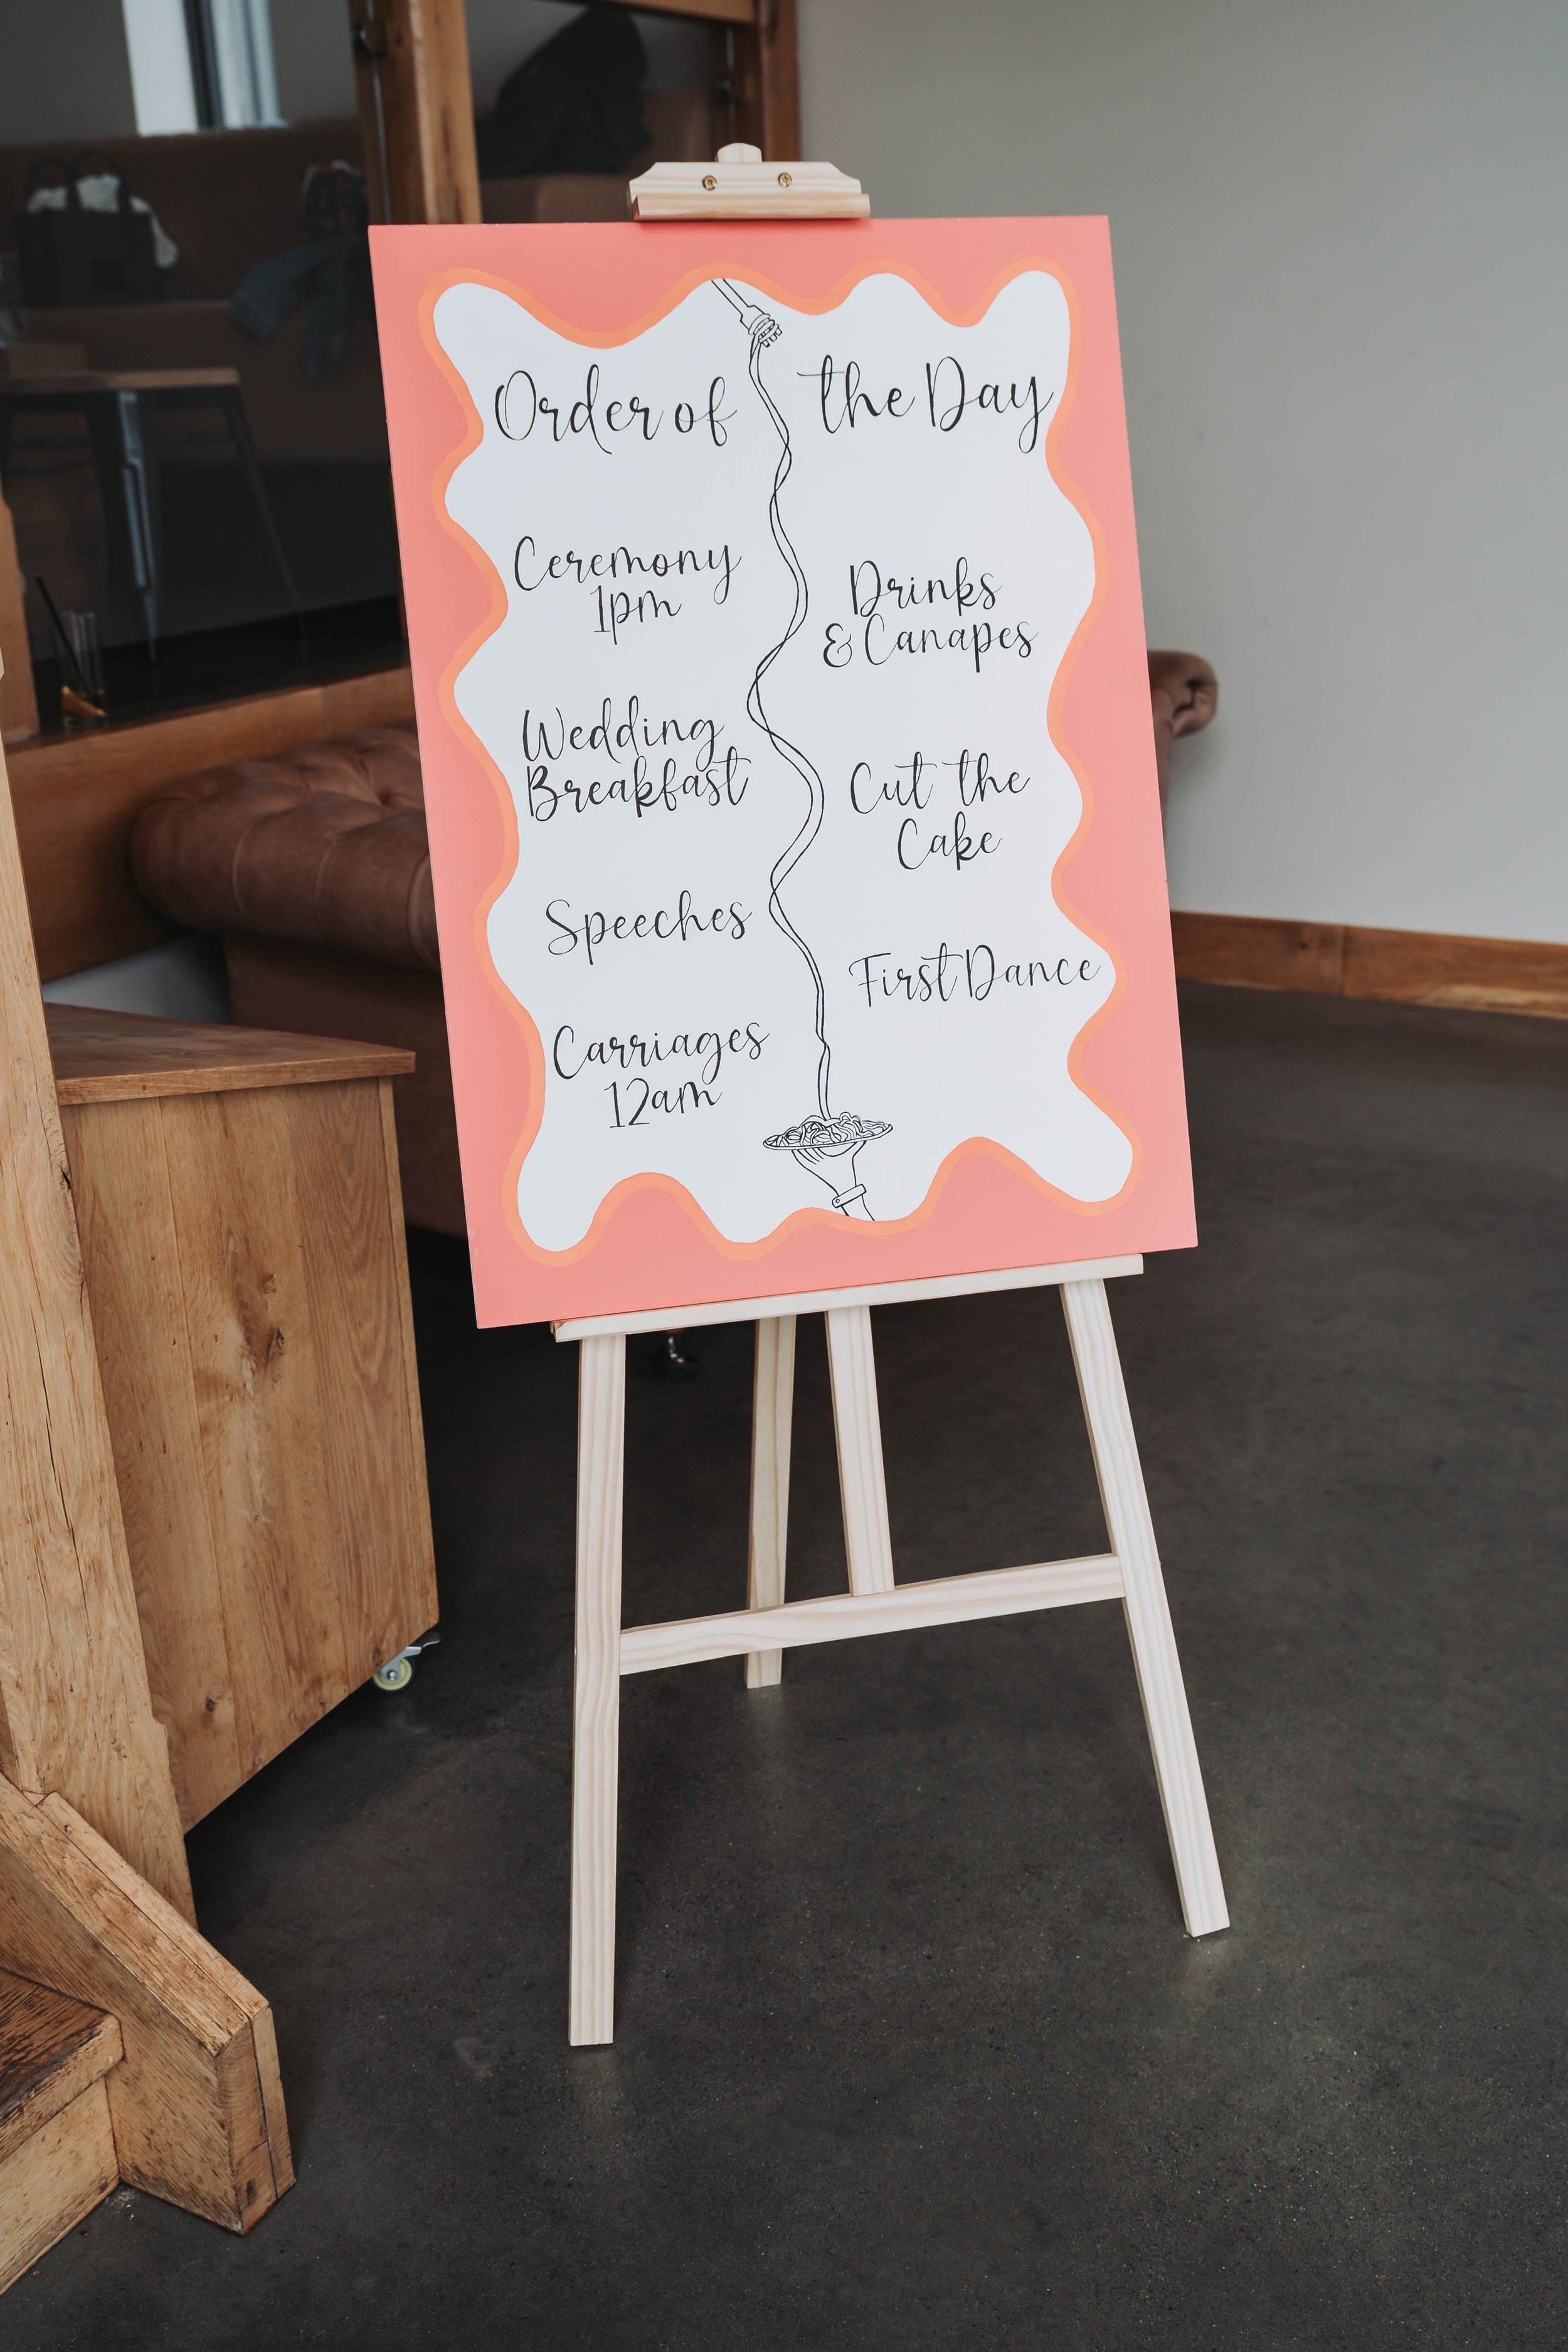 Order of the Day
Ceremony
1pm
Drinks
& Canapes
Wedding
Breakfast
Cut the
Cake
Speeches
First Dance
Carriages
12am